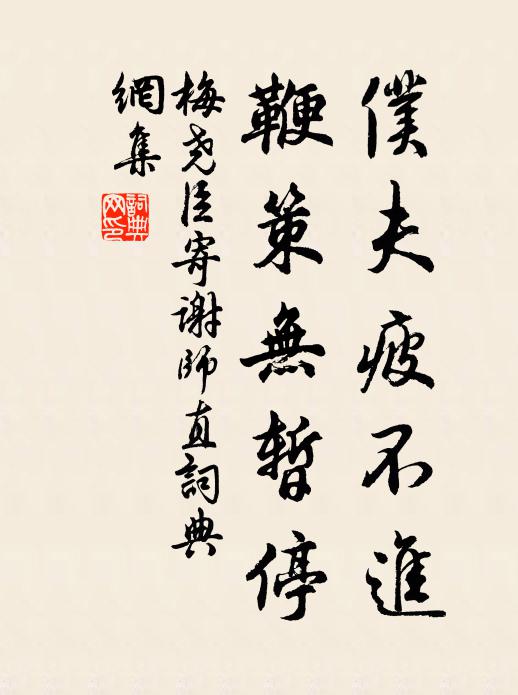 僕夫疲不進
鞭策無暫停
梅堯臣寄謝師直詞典
網集
詞典
网印